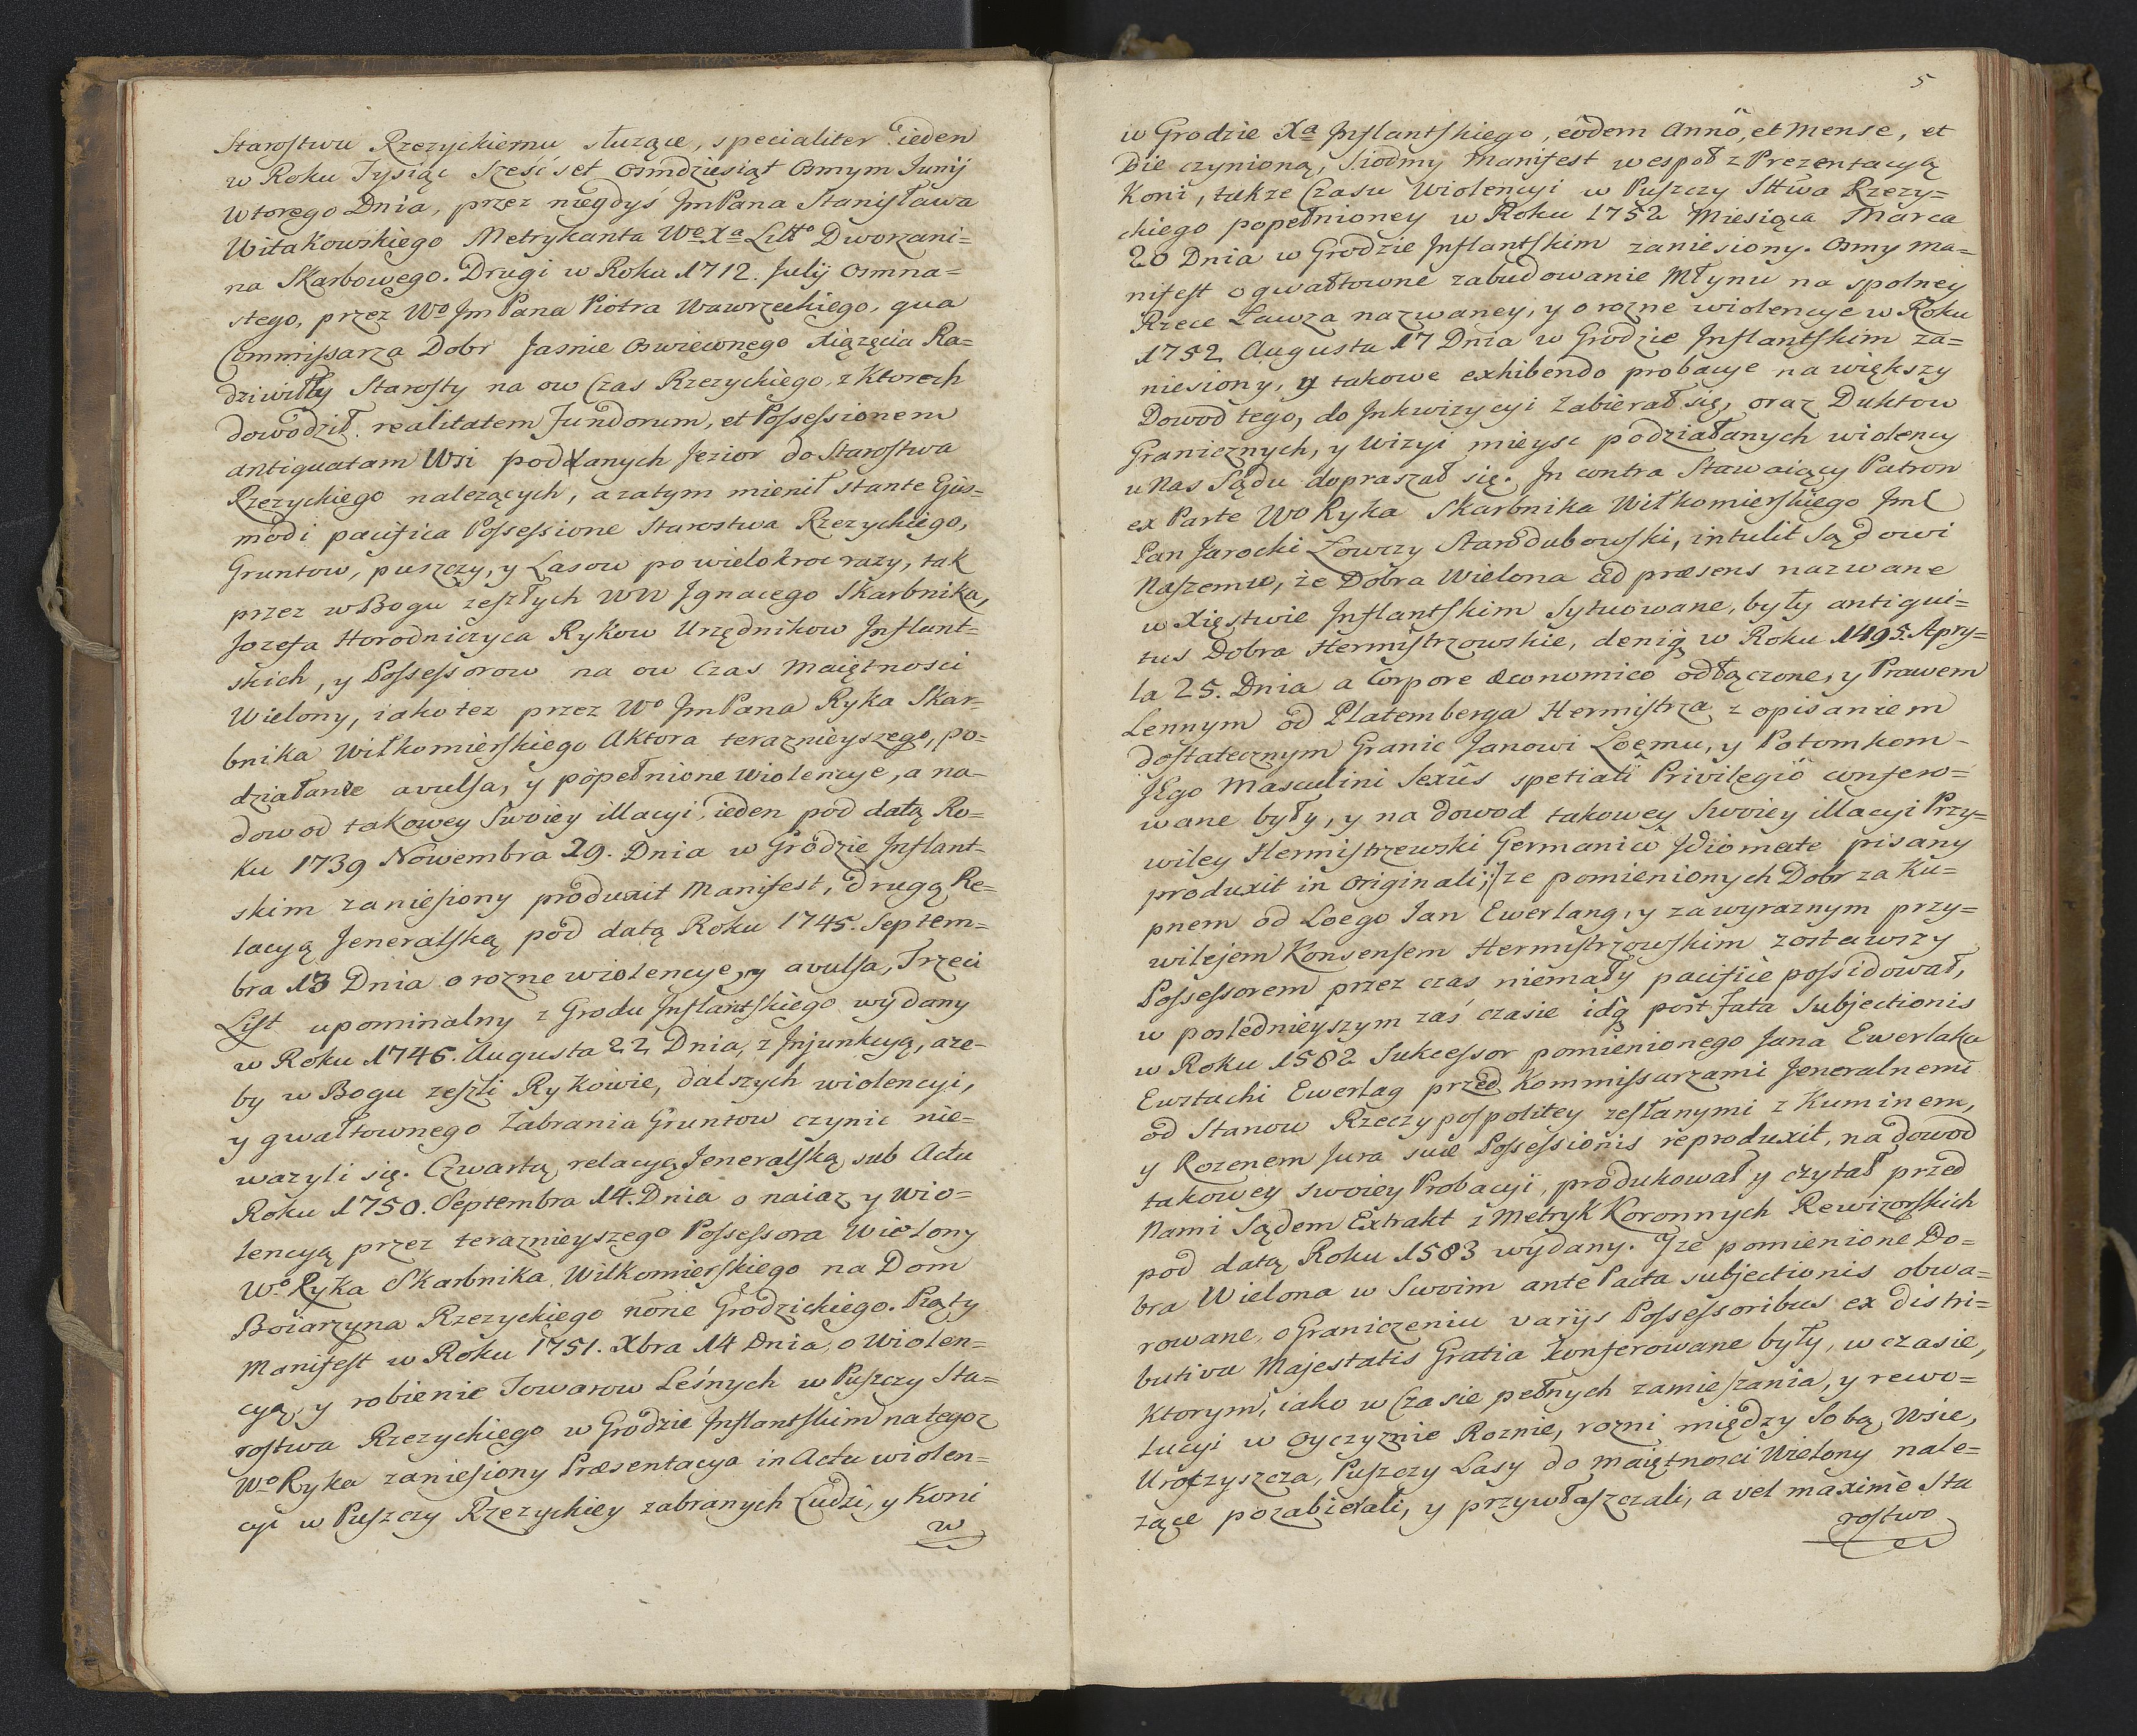 Starostwu Rzezyckiemu słuzące, specialiter ieden
w Roku Tysiąc Sześćset osmdziesiąt osmym Junij
wtorego Dnia, przez niegdyś JmPana Stanisława
Witakowskiego Metrykanta Wo Xa Litto Dworzani=
na Skarbowego. Drugi w Roku 1712. Julij osmna=
stego, przez Wo JmPana Piotra Wawrzeckiego, qua
Commissarza Dobr Jasnie Oswieconego Xiązęcia Ra=
dziwiłły Starosty na ow Czas Rzezyckiego, z Ktorech
dowodził realitatem Fundorum, et Possessionem
antiquatam Wsi poddanych Jezior do Starostwa
Rzezyckiego nalezących, a zatym mienił stante Ejus=
modi pacifica Possessione Starostwa Rzezyckiego,
Gruntow, puszczy, y Lasow po wielokroc razy, tak
przez w Bogu zeszłych WW Jgnacego Skarbnika,
Jozefa Horodniczyca Rykow Urzędnikow Inflant=
skich, y Possessorow na ow Czas Maiętnosci
Wielony, iako tez przez Wo JmPana Ryka Skar=
bnika Wiłkomierskiego Aktora teraznieyszego, po=
działane avulsa, y popełnione wiolencye, a na
dowod takowey Swoiey illacyi, ieden pod datą Ro=
ku 1739 Nowembra 29. Dnia w Grodzie Inflant=
skim zaniesiony produxit Manifest, drugą Re=
lacyą Jeneralską pod datą Roku 1745. Septem=
bra 13 Dnia o rozne wiolencye, y avulsa, Trzeci
List upominalny z Grodu Inflantskiego wydany
w Roku 1746. Augusta 22 Dnia, z Jnjunkcyą, aze=
by w Bogu zeszli Rykowie, dalszych wiolencyi,
y gwałtownego Zabrania Gruntow czynic nie=
wazyli się. Czwartą relacyą Jeneralską sub Actu
Roku 1750. Septembra 14. Dnia o naiaz y wio=
lencyą przez teraznieyszego Possessora Wielony
Wo Ryka Skarbnika Wiłkomierskiego na Dom
Boiarzyna Rzezyckiego noīe Grodzickiego. Piąty
Manifest w Roku 1751. Xbra 14 Dnia, o Wiolen=
cyą, y robienie Towarow Leśnych w Puszczy Sta=
rostwa Rzezyckiego w Grodzie Inflantskim na tegoz
Wo Ryka zaniesiony Præsentacya in Actu wiolen=
cyi w Puszczy Rzezyckiey zabranych Ludzi, y Koni
w
5
w Grodzie Xa Inflantskiego, eodem Anno, et Mense, et
Die czynioną, Siodmy Manifest wespoł z Prezentacyą
Koni, takze Czasu Wiolencyi w Puszczy Sttwa Rzezy=
ckiego popełnioney w Roku 1752 Miesiąca Marca
20 Dnia w Grodzie Inflantskim zaniesiony. Osmy Ma=
nifest o gwałtowne zabudowanie Młynu na spolney
Rzece Lawza nazwaney, y o rozne wiolencye w Roku
1752 Augusta 17 Dnia w Grodzie Inflantskim za=
niesiony, y takowe exhibendo probacye na większy
Dowod tego, do Jnkwizycyi Zabierał się, oraz Duktow
Granicznych, y Wizyi mieysc podziałanych wiolency
u Nas Sądu dopraszał się. In contra Stawaiący Patron
ex Parte Wo Ryka Skarbnika Wiłkomierskiego Jmć
Pan Jarocki Łowczy Starodubowski, intulit Sądowi
Naszemu, ze Dobra Wielona ad præsens nazwane
w Xięstwie Inflantskim Sytuowane, były antiqui=
tus Dobra Hermistrzowskie, deniq w Roku 1495. Apry=
la 25. Dnia a Corpore œconomico odłączone, y Prawem
Lennym od Platemberga Hermistrza z opisaniem
dostatecznym Granic Janowi Loemu, y Potomkom
JEgo Masculini Sexûs spetiali Privilegio confero=
wane były, y na dowod takowey Swoiey illacyi Przy=
wiley Hermistrzewski Germanico Jdiomate pisany
produxit in Originali; Jze pomienionych Dobr za Ku=
pnem od Loego Jan Ewerlang, y za wyraznym przy=
wilejem Konsensem Hermistrzowskim zostawszy
Possessorem przez czas niemały pacifice possidował,
w poslednieyszym zaś czasie idq post Fata Subjectionis
w Roku 1582 Sukcessor pomienionego Jana Ewerlaka
Eustachi Ewerlag przed Kommissarzami Jeneralnemi
od Stanow Rzeczypospolitey zesłanymi z Kuminem,
y Rozenem Jura suæ Possessionis reproduxit, na dowod
takowey swoiey Probacyi, produkował y czytał przed
Nami Sądem Extrakt z Metryk Koronnych Rewizorskich
pod datą Roku 1583 wydany. Jze pomienione Do=
bra Wielona w Swoim ante Pacta subjectionis obwa=
rowane, o Graniczeniu varijs Possessoribus ex distri=
butiva Majestatis Gratia konferowane były, w czasie,
Ktorym, iako w Czasie pełnych zamieszania, y rewo=
lucyi w Oyczyznie Roznie, rozni między Sobą, Wsie,
Uroczyszcza, Puszczy Lasy do Maiętnosci Wielony nale=
zące pozabierali, y przywłaszczali, a vel maxime Sta
rostwo